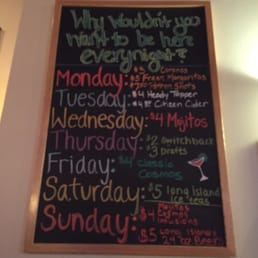 Why wouldn't you
want to be here
every night?
Monday: $3 Coronas
$5 Frozen Margaritas
Tuesday: $4 Heady Topper
$4 Citizen Cider
Wednesday: $4 Mojitos
Thursday: $2 Switchback
$3 Drafts
Friday: $4 Classic
Cosmos
Saturday: $5 Long Island
Ice teas
Sunday: $4 Mojitos
Cosmos
Infusions
$5 Long Islands
24 oz Beer